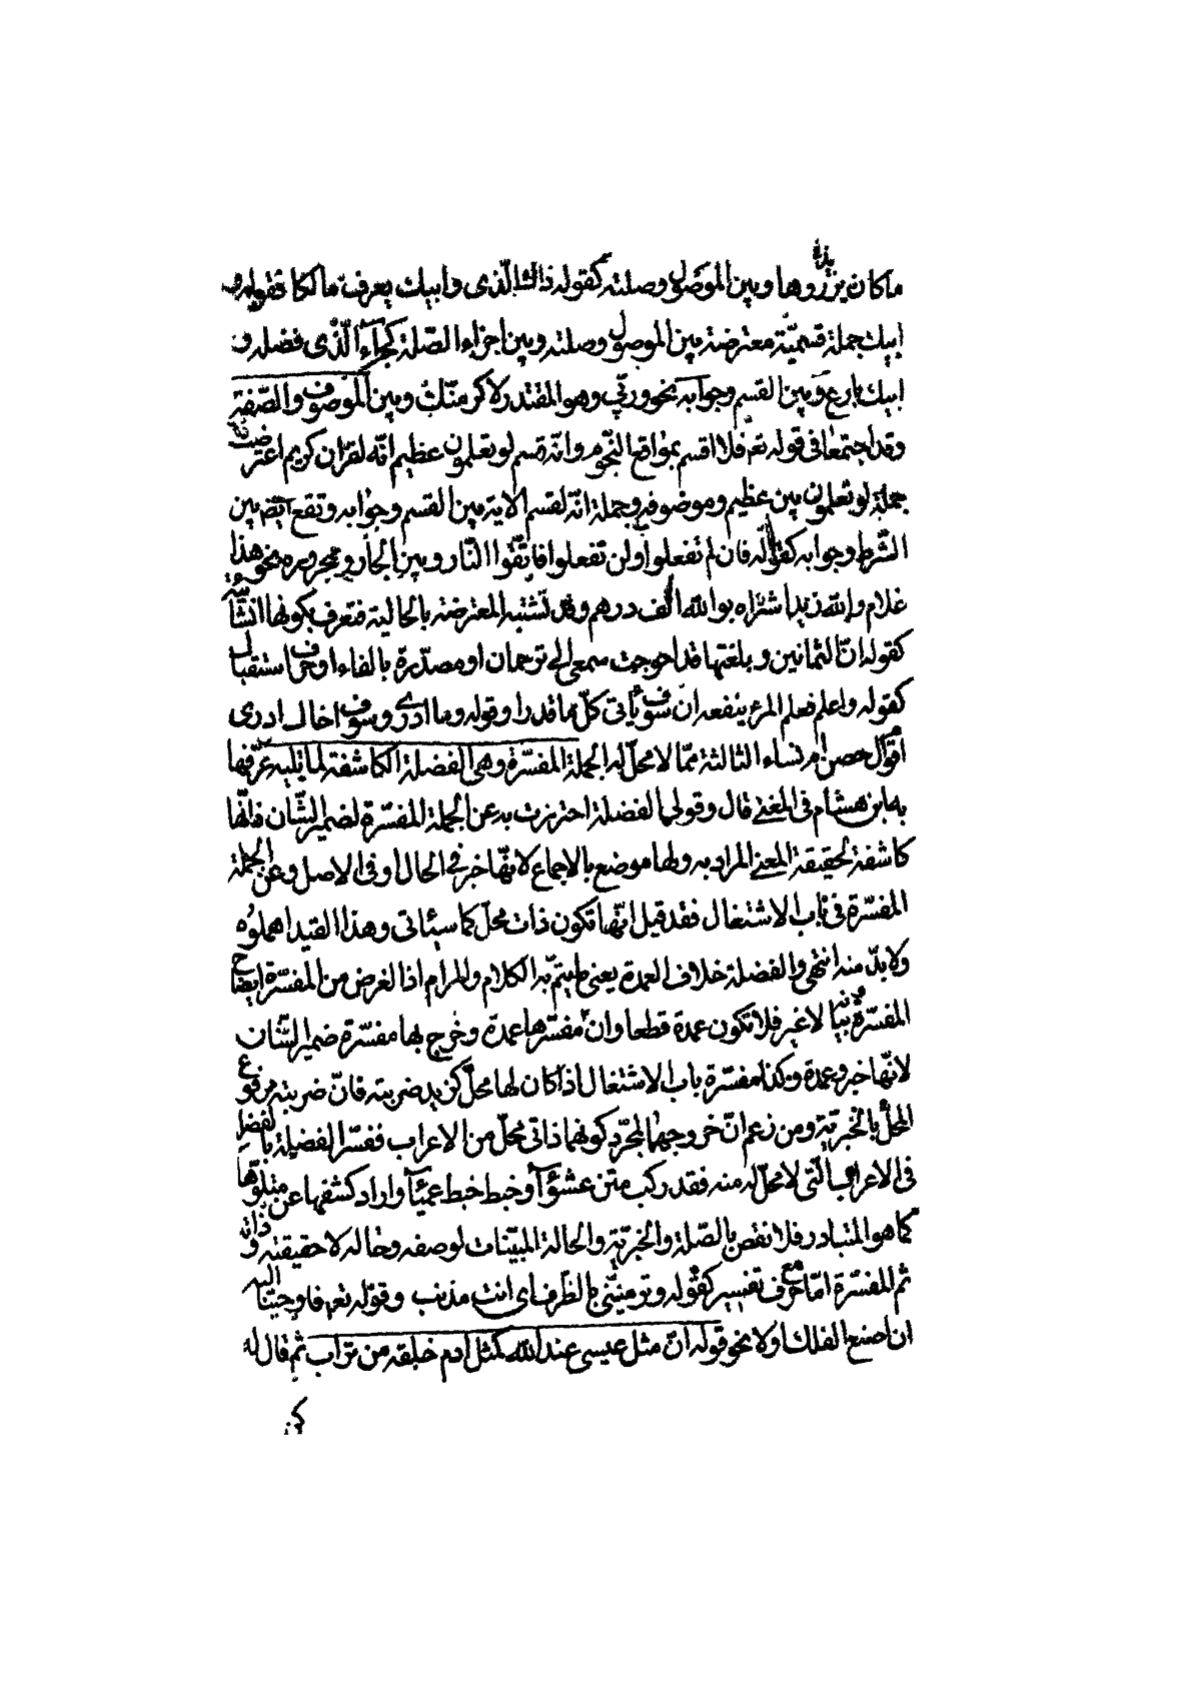 ما كان يزرؤها وبين الموصول وصلته كقوله ذاك الذي وابيك يعرف مالكا فقوله و
ابيك جملة قسميّة معترضة بين الموصول وصلته وبين اجزاء الصّلة كجاء الّذى فضله و
ابيك بارع وبين القسم وجوابه نحو وربّي وهو المقتدر لاكرمنّك وبين الموصوف والصّفة
وقد اجتمعا فى قوله تع فلا اقسم بمواقع النّجوم وانّه قسم لو تعلمون عظيم انّه لقران كريم اعترضت
جملة لو تعلمون بين عظيم وموصوفه وجملة انّه لقسم الاية بين القسم وجوابه وتقع ايض بين
الشّرط وجوابه كقوله فان لم تفعلوا ولن تفعلوا فاتّقوا النّار وبين الجارّ ومجروره نحو هذا
غلام والله زيد اشتراه بو الله الف درهم وقد تشتبه المعترضة بالحالية فتعرف بكونها انشائيّة
كقوله انّ الثمانين وبلغتها قد احوجت سمعى الى ترجمان او مصدّرة بالفاء او حرف استقبال
كقوله واعلم فعلم المرء ينفعه ان سوف يأتى كلّ ما قدرا وقوله وما ادرى وسوف اخال ادرى
اقوم ال حصن ام نساء الثالثة ممّا لا محلّ له الجملة المفسّرة وهى الفضلة الكاشفة لما تليه عرّفها
به ابن هشام فى المغنى قال وقولى الفضلة احترزت به عن الجملة المفسّرة لضمير الشّان فانّها
كاشفة لحقيقة المعنى المراد به ولها موضع بالاجماع لانّها خبر فى الحال او فى الاصل وعن الجملة
المفسّرة فى باب الاشتغال فقد قيل انّها تكون ذات محلّ كما سيأتى وهذا القيد اهملوه
ولا بدّ منه انتهى والفضلة خلاف العمدة يعنى ما يتمّ به الكلام والمرام اذ الغرض من المفسّرة ايضاح
المفسّر وبيانه لا غير فلا تكون عمدة قطعا وان مفسّرها عمدة وخرج بها مفسّرة ضمير الشّان
لانّها خبر وعمدة وكذا مفسّرة باب الاشتغال اذا كان لها محلّ كزيد ضربته فانّ ضربته مرفوع
المحلّ بالخبريّة ومن زعم انّ خروجهما لمجرّد كونهما ذاتى محلّ من الاعراب ففسّر الفضيلة بالفضل
فى الاعراب الّتى لا محلّ له منه فقد ركب متن عشوآء وخبط خبط عميآء واراد كشفها عن متلوّها
كما هو المتبادر فلا نقض بالصّلة والخبريّة والحالة المبيّنات لوصفه وحاله لا حقيقته وذاته
ثم المفسّرة امّا مع حرف تفسير كقوله وترميننى بالطّرف اى انت مذنب وقوله تعم فاوحينا اليه
ان اصنع الفلك اولا نحو قوله انّ مثل عيسى عند الله كمثل ادم خلقه من تراب ثم قال له
كن